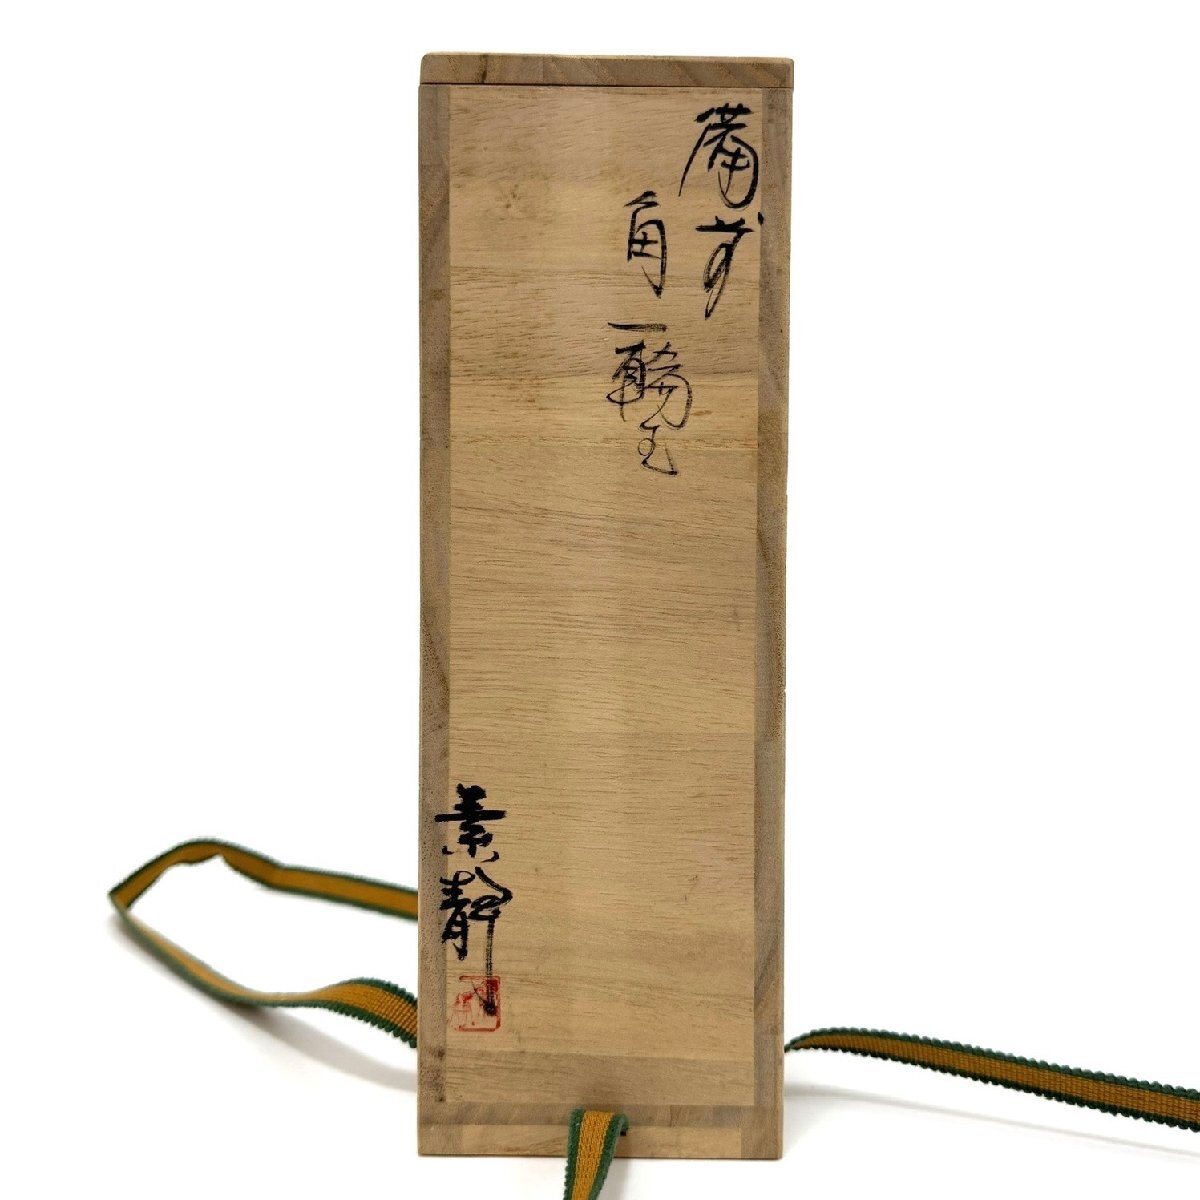 備前
角一輪生
素静